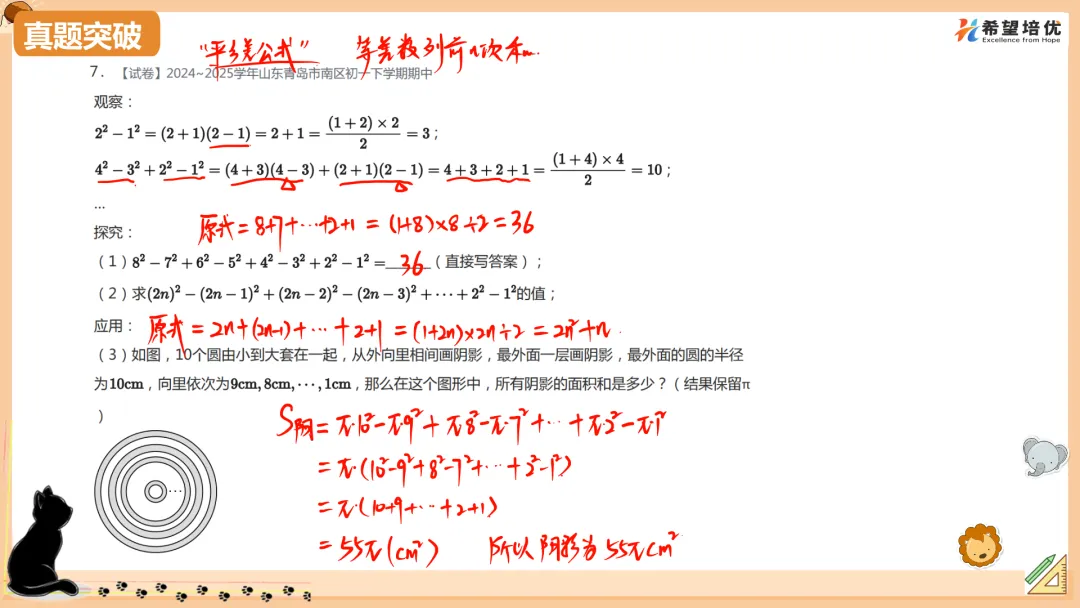 真题突破
希望培优
Excellence from Hope
“平方差公式” 等差数列前n次和
7. 【试卷】2024~2025学年山东青岛市南区初一下学期期中
观察：
2² − 1² = (2 + 1)(2 − 1) = 2 + 1 = (1 + 2) × 2 / 2 = 3；
4² − 3² + 2² − 1² = (4 + 3)(4 − 3) + (2 + 1)(2 − 1) = 4 + 3 + 2 + 1 = (1 + 4) × 4 / 2 = 10；
...
原式 = 8+7+…+2+1 = (1+8)×8÷2 = 36
探究：
（1）8² − 7² + 6² − 5² + 4² − 3² + 2² − 1² = 36（直接写答案）；
（2）求(2n)² − (2n − 1)² + (2n − 2)² − (2n − 3)² + ⋯ + 2² − 1²的值；
应用： 原式 = 2n+(2n-1)+ … + 2+1 = (1+2n)×2n÷2 = 2n²+n .
（3）如图，10个圆由小到大套在一起，从外向里相间画阴影，最外面一层画阴影，最外面的圆的半径
为10cm，向里依次为9cm, 8cm, ⋯, 1cm，那么在这个图形中，所有阴影的面积和是多少？（结果保留π
）
S阴 = π·10²−π·9²+π·8²−π·7²+…+π·2²−π·1²
= π·(10²−9²+8²−7²+…+2²−1²)
= π·(10+9+…+2+1)
= 55π(cm²) 所以阴影为55πcm²
…